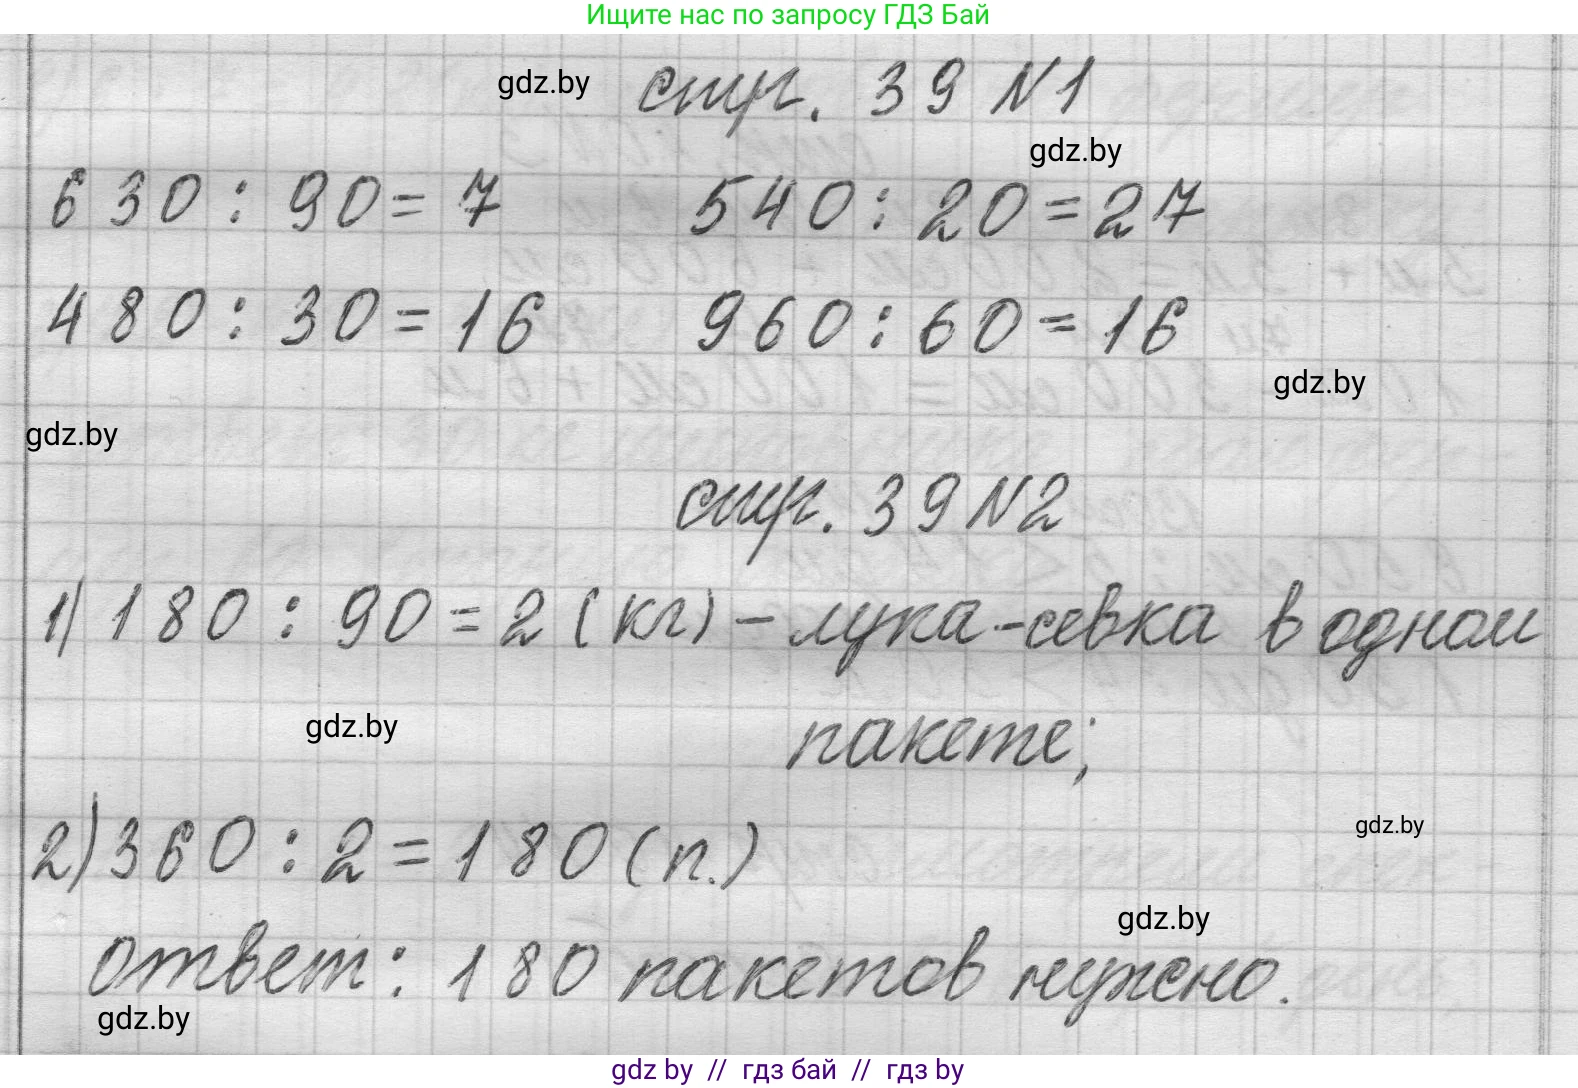 Ищите нас по запросу ГДЗ Бай
gdz.by стр. 39 N1
gdz.by
630 : 90 = 7 540 : 20 = 27
480 : 30 = 16 960 : 60 = 16
gdz.by
gdz.by
стр. 39 N2
1) 180 : 90 = 2 (кг) - лука-севка в одном
gdz.by пакете;
2) 360 : 2 = 180 (п.)
gdz.by
gdz.by
ответ: 180 пакетов нужно.
gdz.by
gdz by // гдз бай // gdz by